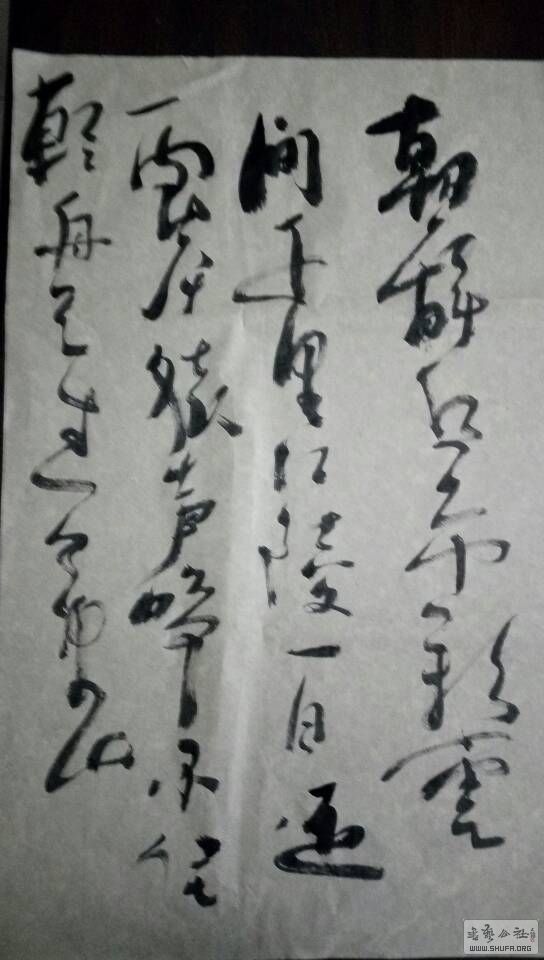 朝辭白帝彩雲
間千里江陵一日還
兩岸猿声啼不住
輕舟已過萬重山
书艺公社
WWW.SHUFA.ORG